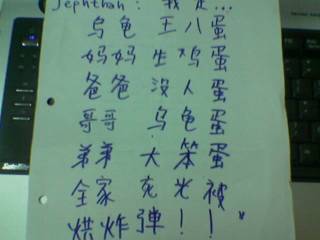 Jephthah: 我是...
乌龟 王八蛋
妈妈 生鸡蛋
爸爸 没人蛋
哥哥 乌龟蛋
弟弟 大笨蛋
全家 充光被
烘炸弹!!